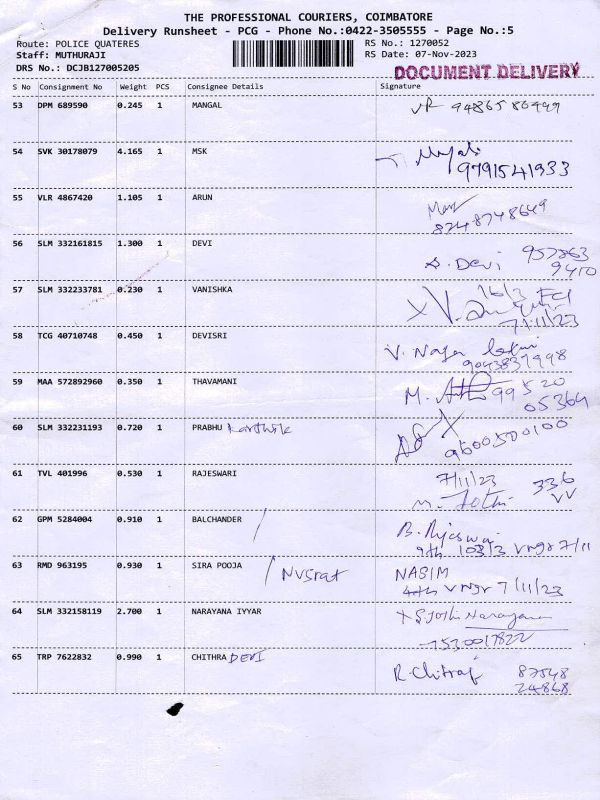 THE PROFESSIONAL COURIERS, COIMBATORE
Delivery Runsheet - PCG - Phone No.:0422-3505555 - Page No.:5
Route: POLICE QUATERES RS No.: 1270052
Staff: MUTHURAJI RS Date: 07-Nov-2023
DRS No.: DCJB127005205 DOCUMENT DELIVERY
S No Consignment No Weight PCS Consignee Details Signature
53 DPM 689590 0.245 1 MANGAL
54 SVK 30178079 4.165 1 MSK
9791541933
55 VLR 4867420 1.105 1 ARUN
8248748649
56 SLM 332161815 1.300 1 DEVI S. Devi 957863
9410
57 SLM 332233781 0.230 1 VANISHKA 16/3
7/11/23
58 TCG 40710748 0.450 1 DEVISRI V. Naga
59 MAA 572892960 0.350 1 THAVAMANI M. 99520
05364
60 SLM 332231193 0.720 1 PRABHU Karthik
9600500100
61 TVL 401996 0.530 1 RAJESWARI 7/11/23 336
M. Jothi VV
62 GPM 5284004 0.910 1 BALCHANDER B. Rjeswari
9th 103/3 Vngr 7/11
63 RMD 963195 0.930 1 SIRA POOJA Nusrat NASIM
4th Vngr 7/11/23
64 SLM 332158119 2.700 1 NARAYANA IYYAR X S. Jothi Narayanan
7530017822
65 TRP 7622832 0.990 1 CHITHRA DEVI R. Chitraf 87548
24868